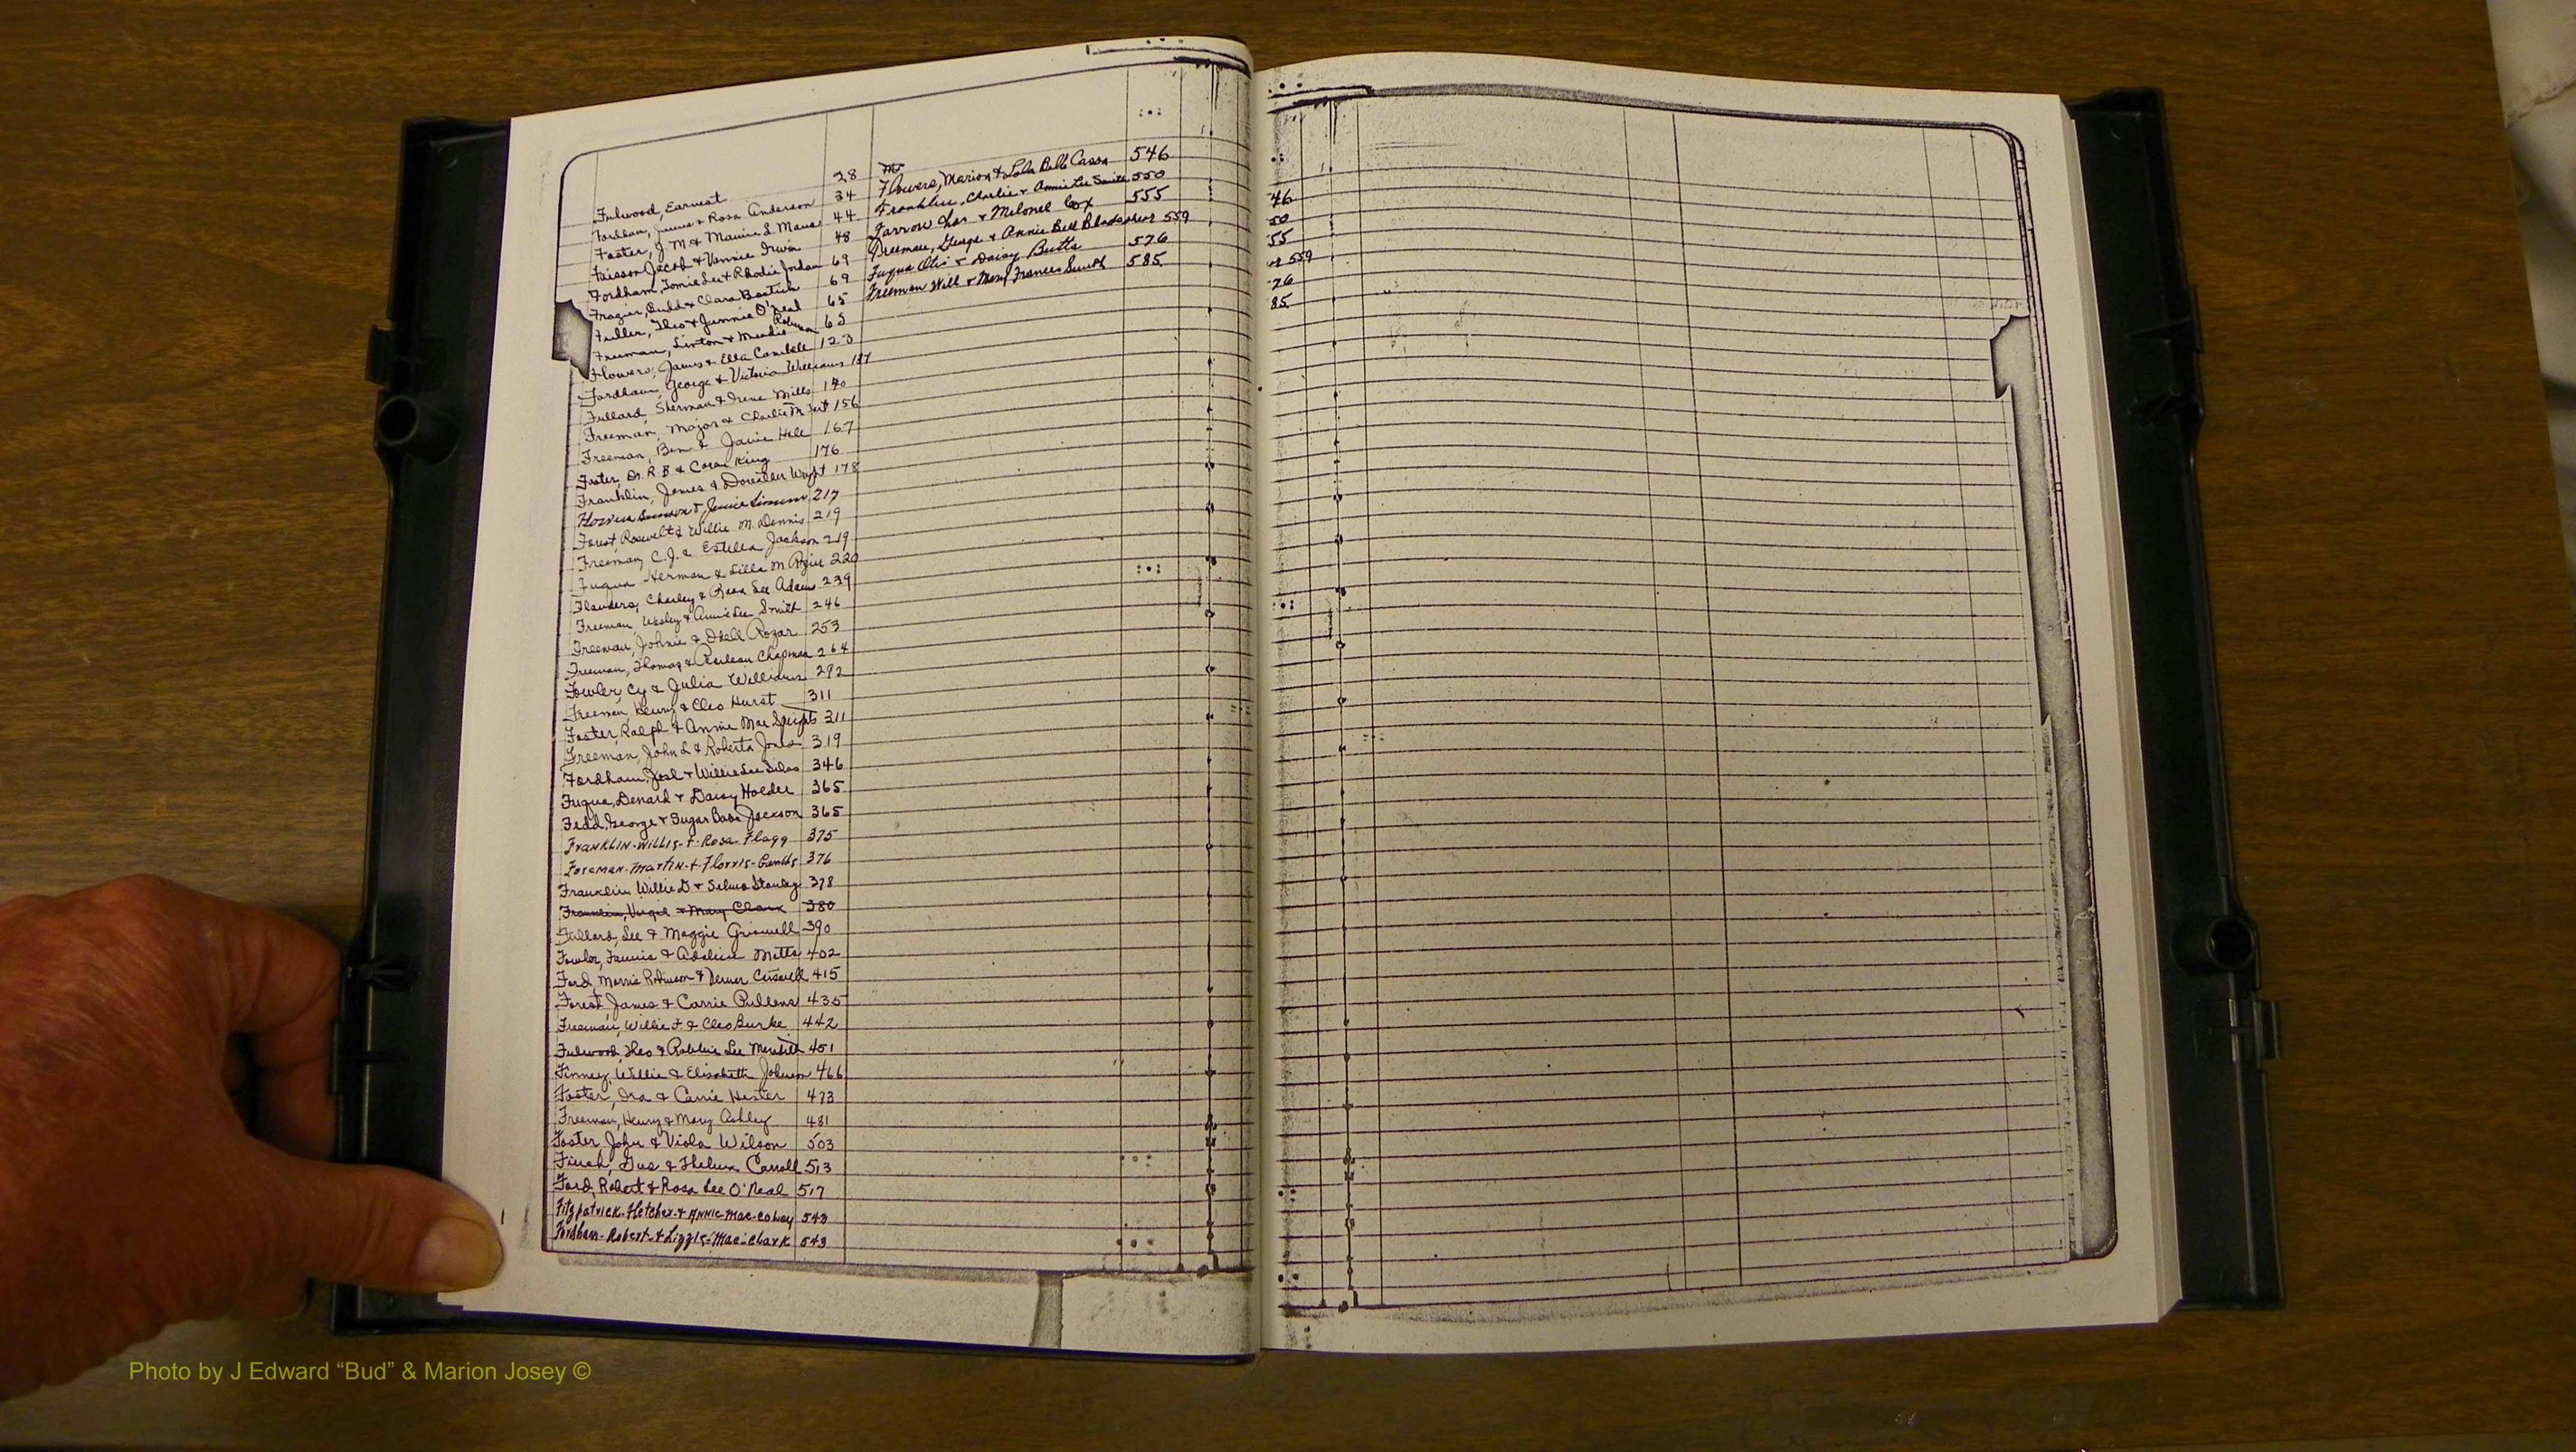 Fulwood, Earnest 28
Fordham, James & Rosa Anderson 34
Foster, J. M. & Mamie L. 44
Faison Jacob & Vannie Irwin 48
Fordham, Tomie Lee & Rhodia Jordan 69
Frazier, Budd & Clara Bostick 69
Fuller, Theo & Jennie O'Neal 65
Freeman, Linton & Robinson 65
Flowers, James & Ella 123
Fordham, George & Victoria Williams 137
Fullard, Sherman & Irene Mills 140
Freeman, Major & Charlie M. 156
Freeman, Ben & Janie Hall 167
Foster, Dr. R. B & King 176
Franklin, James & Wright 178
217
Forest, Roosevelt & Willie M. Dennis 219
Freeman, C. J. & Estella Jackson 219
Fuqua Herman & Lilla M. 220
Flanders, Charley & Rosa Lee Adams 239
Freeman, Wesley & Annie Lee Smith 246
Freeman, Johnie & Odell Rozar 253
Freeman, Thomas & Chapman 264
Fowler, Cy & Julia Williams 292
Freeman, Henry & Cleo Hurst 311
Foster, Ralph & Annie Mae Speights 311
Freeman, John L & Roberta Jones 319
Fordham, Josh & Willie Lee Silas 346
Fuqua, Denard & Daisy Holder 365
Fedd, George & Sugar Babe Jackson 365
Franklin-Willis-&-Rosa-Flagg 375
Foreman-Martin-&-Florris- 376
Franklin, Willie D & Selma Stanley 378
Franklin, Virgil & Mary Clark 380
Fullard, Lee & Maggie Griswell 390
Fowler, & Mitts 402
Ford, Morris Robinson & 415
Forest, James & Carrie Pullens 435
Freeman, Willie F. & Cleo Burke 442
Fulwood, Theo & Robbie Lee Meredith 451
Finney, Willie & Elizabeth Johnson 466
Foster, Ira & Carrie Hester 473
Freeman, Henry & Mary Ashley 481
Foster, John & Viola Wilson 503
Finch, Gus & Thelma Carroll 513
Ford, Robert & Rosa Lee O'Neal 517
Fitzpatrick-Fletcher-&-Annie-Mae-Coney 543
Fordham-Robert-&-Lizzie-Mae-Clark 543
Flowers, Marion & Lola Bell Cason 546
Franklin, Charlie & Annie Lee Smith 550
Farrow Chas & Cox 555
Freeman, George & Annie Bell Bloodshear 559
Fuqua Otis & Daisy Butts 576
Freeman Will & Mary Frances Smith 585
46
50
55
559
76
85
Photo by J Edward “Bud” & Marion Josey ©